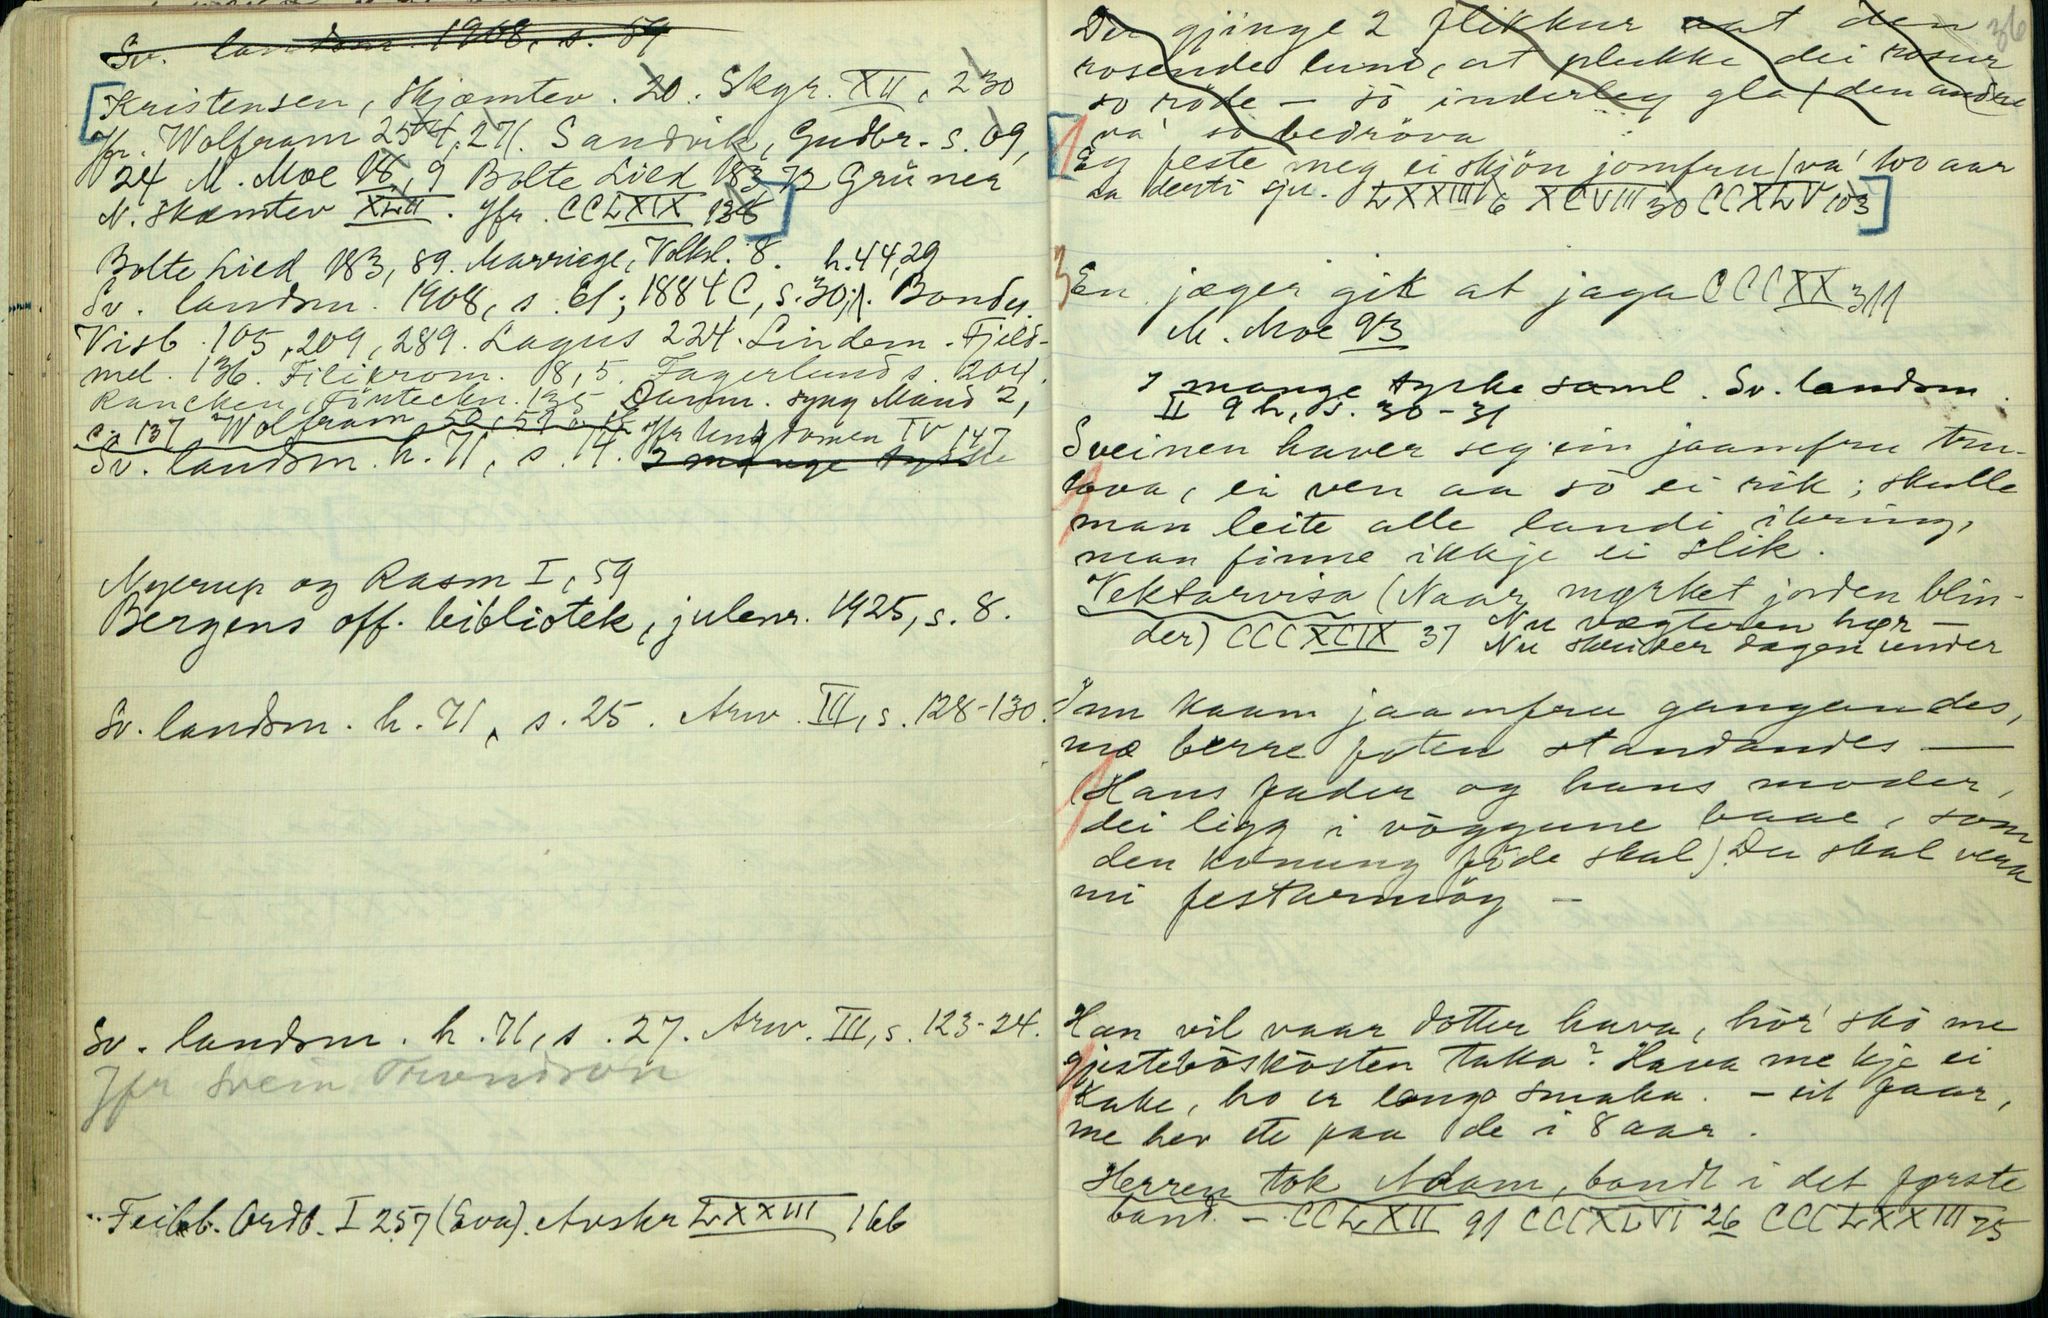 Sv. landsm. 1908, s. 59
Kristensen, Skjæmtev. 20. Skgr. XII, 230
Jfr. Wolfram 254, 271. Sandvik, Gudbr. s. 69,
24 M. Moe 18, 9 Bolte Lied 183, 72 Grüner
N. Skæmtev XLII. Jfr. CCLXIX 138
Bolte Lied 183, 89. Marriage, Volksl. 8. h. 44, 29
Sv. landsm. 1908, s. 61; 1884 C, s. 30, Bondes.
Visb. 105, 209, 289. Lagus 224. Lindem. Fjeld-
mel. 136. Filikrom. 18, 5. Fagerlund s. 204.
Rancken, Förteckn. 135 Danm. syng Mand 2,
s. 137 Wolfram 50, 59 Jfr Ungdomen IV 147
Sv. landsm. h. 71, s. 14. I mange tykste
Nyerup og Rasm I, 59
Bergens off. bibliotek, julenr. 1925, s. 8.
Sv. landsm. h. 71, s. 25. Arw. III, s. 128-130.
Sv. landsm. h. 71, s. 27. Arw. III, s. 123-24.
Jfr Svein Trondson
Feilb. Ordb. I 257 (Eva). Avskr LXXIII 166
36
Der gjinge 2 flikkur aat den
rosende lund, at plukke dei rosur
so röde — so inderleg gla / den andre
va' so bedröva
1 Eg feste meg ei skjön jomfru / va' 100 aar
aa derti sju. LXXIII 6 XCVIII 30 CCXLV 103
3 En jæger gik at jaga CCCXX 311
M. Moe 93
I mange tyske saml. Sv. landsm.
II 9 h, s. 30-31
Sveinen haver seg ein jaamfru tru-
lova, ei ven aa so ei rik; skulle
man leite alle landi ikring,
man finne ikkje ei slik.
Vektarvisa (Naar mørket jorden blin-
der) CCCXCIX 37 Nu vægteren hør —
Nu skrider dagen under
Inn kaam jaamfru gangandes,
mæ berre foten standandes —
(Hans fader og hans moder,
dei ligg i vöggune baae, som
den konung föde skal) Du skal vera
mi festarmöy —
Han vil vaar dotter hava, hör' sko me
gjesteböskosten taka? Hava me kje ei
Kake, ho er long smaka. — eit faar,
me hev ete paa de i 8 aar.
Herren tok Adam, bandt i det første
band. — CCLXII 91 CCCXLVI 26 CCCLXXIII 75